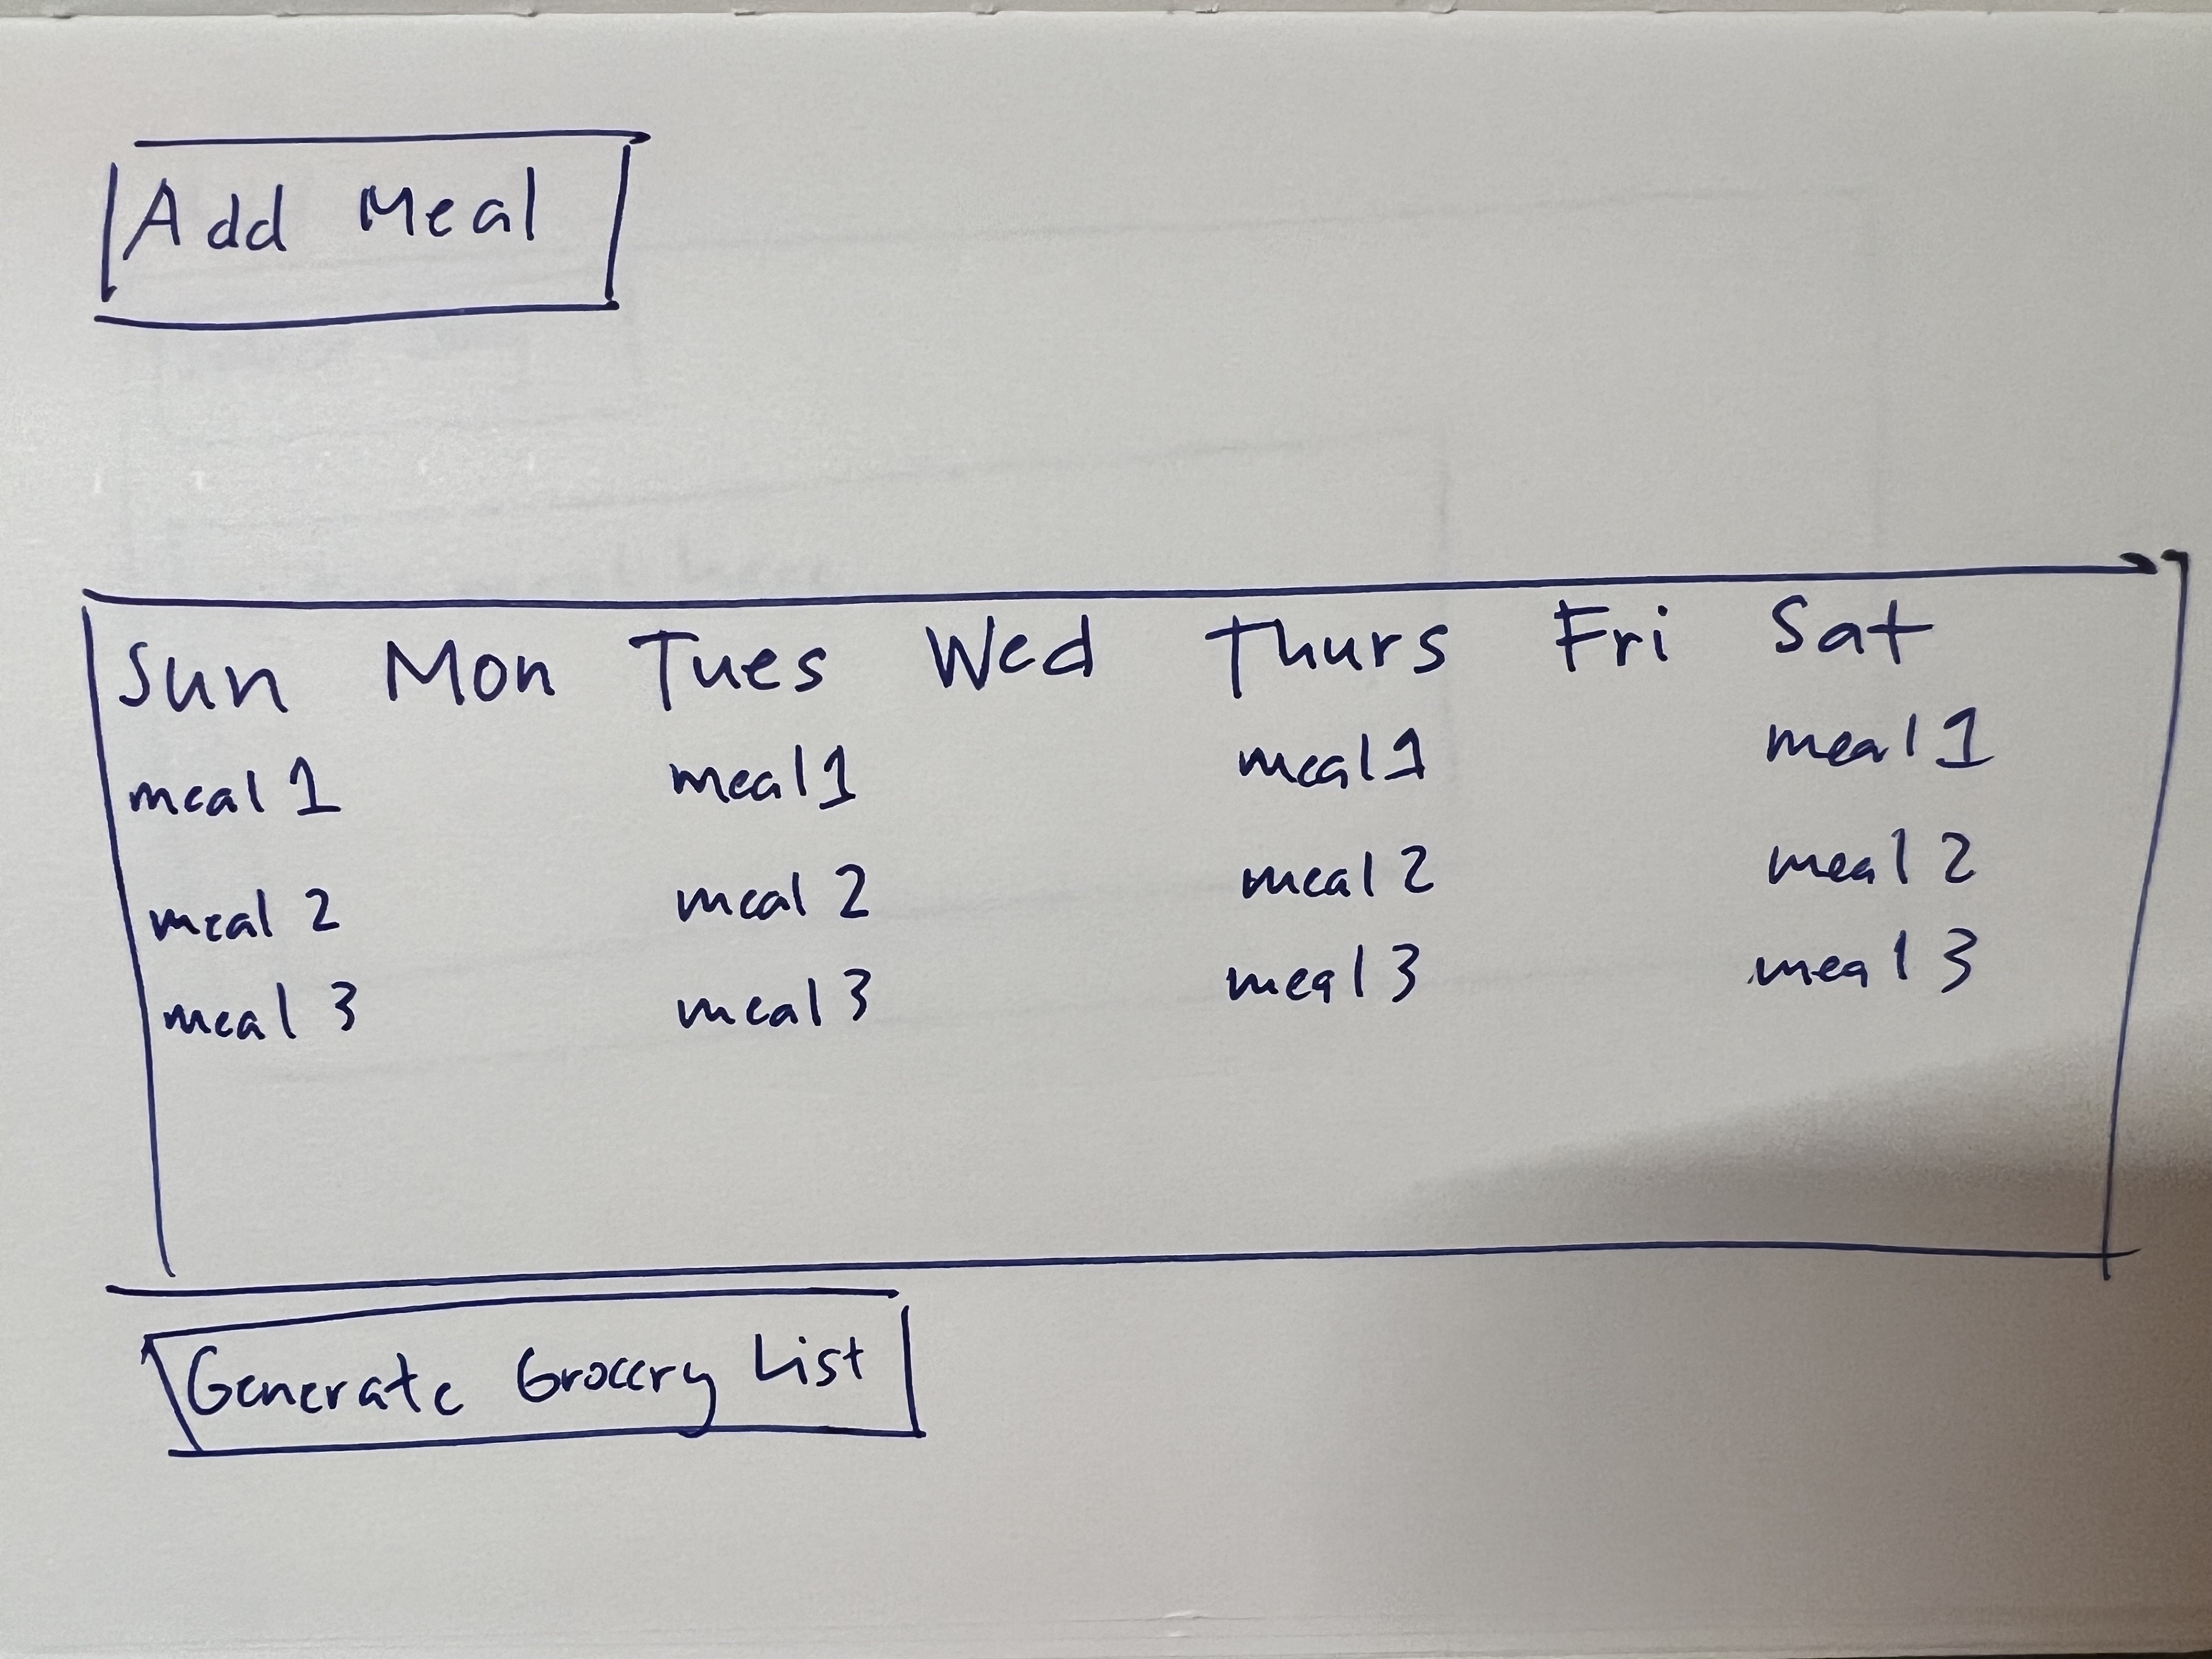 Add Meal
Sun Mon Tues Wed Thurs Fri Sat
meal 1 meal 1 meal 1 meal 1
meal 2 meal 2 meal 2 meal 2
meal 3 meal 3 meal 3 meal 3
Generate Grocery List